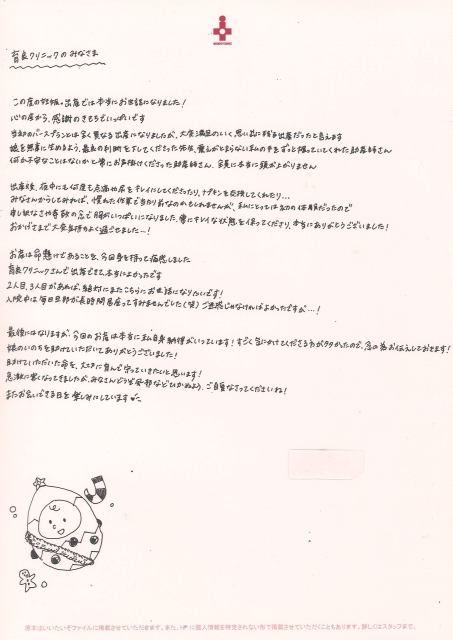 育良クリニックのみなさま
この度の妊娠・出産では本当にお世話になりました!
心の底から、感謝のきもちでいっぱいです
当初のバースプランとは全く異なる出産になりましたが、大変満足のいく思い出に残る出産だったと言えます
娘を無事に生めるよう、最良の判断を下してくださった先生、震えがとまらない私の手をずっと握っていてくれた助産師さん
何か不安なことはないかと常にお声掛けくださった助産師さん、全員に本当に頭が上がりません
出産後、夜中にも何度も点滴や尿をキレイにしてくださったり、ナプキンを交換してくれたり...
みなさんからしてみれば、慣れた作業で当たり前なのかもしれませんが、私にとっては初の体験だったので
申し訳なさや感謝の念で胸がいっぱいになりました。常にキレイな状態を保ってくださり、本当にありがとうございました!
おかげさまで大変気持ちよく過ごせました...!
お産は命懸けであることを、今回身を持って痛感しました
育良クリニックさんで出産できて、本当によかったです
2人目、3人目があれば、絶対にまたこちらにお世話になりたいです!
入院中は毎日旦那が長時間居座ってすみませんでした(笑) ご迷惑じゃなければよかったですが...!
最後にはなりますが、今回のお産は本当に私自身納得がいっています! すごく気にかけてくださる方が多かったので、念の為お伝えしておきます!
娘のいのちを助けていただいてありがとうございました!
助けていただいた命を、大切に育んで守っていきたいと思います!
急激に寒くなってきましたが、みなさんどうぞ風邪などひかぬよう、ご自愛なさってくださいね!
またお会いできる日を楽しみにしています
原本はいいたいぞファイルに掲載させていただきます。また、HPに個人情報を特定されない形で掲載させていただくこともあります。詳しくはスタッフまで。